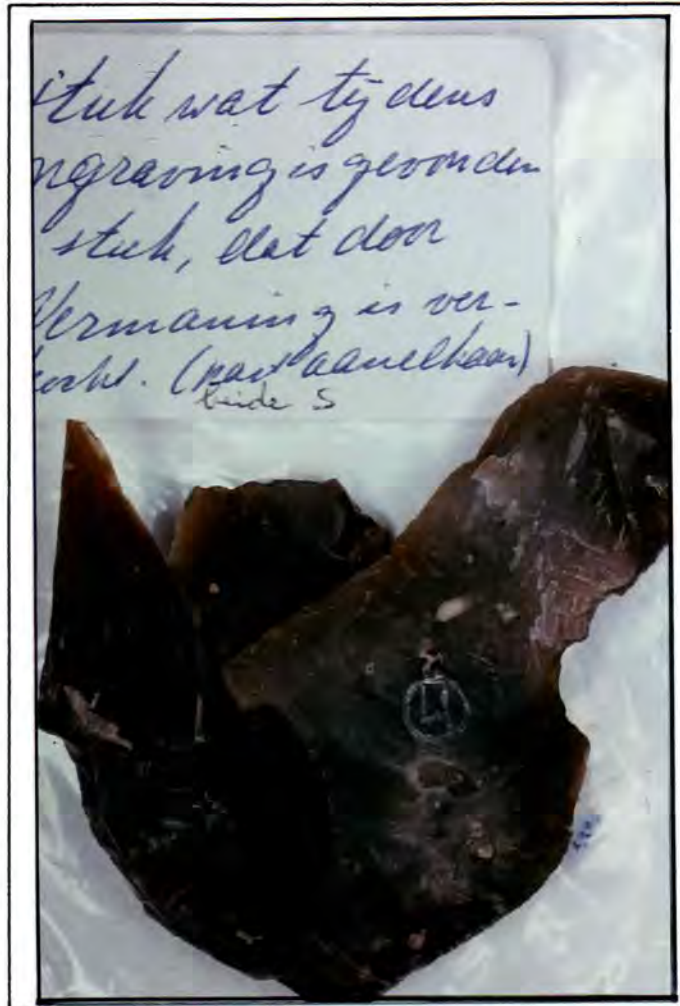 stuk wat tijdens
ngraving is gevonden
stuk, dat door
Vermaning is ver-
kocht. (past aan elkaar)
beide S